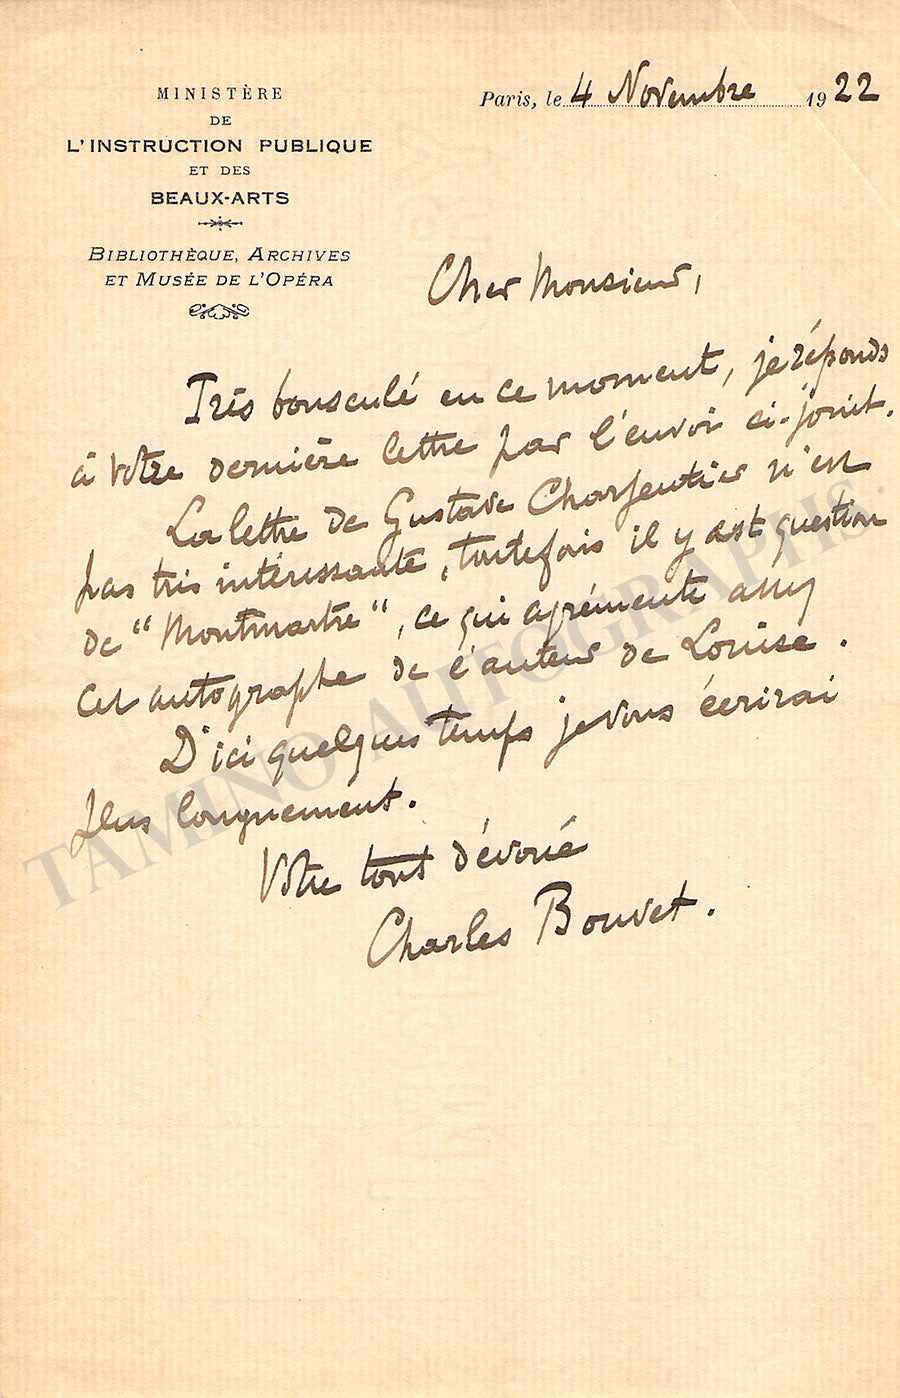 MINISTÈRE
DE
L'INSTRUCTION PUBLIQUE
ET DES
BEAUX-ARTS
BIBLIOTHÈQUE, ARCHIVES
ET MUSÉE DE L'OPÉRA
Paris, le 4 Novembre 1922
Cher Monsieur,
Très bousculé en ce moment, je réponds
à votre dernière lettre par l'envoi ci-joint.
La lettre de Gustave Charpentier n'est
pas très intéressante, toutefois il y est question
de "Montmartre", ce qui agrémente assez
cet autographe de l'auteur de Louise.
D'ici quelques temps je vous écrirai
plus longuement.
Votre tout dévoué
Charles Bouvet.
TAMINO AUTOGRAPHS